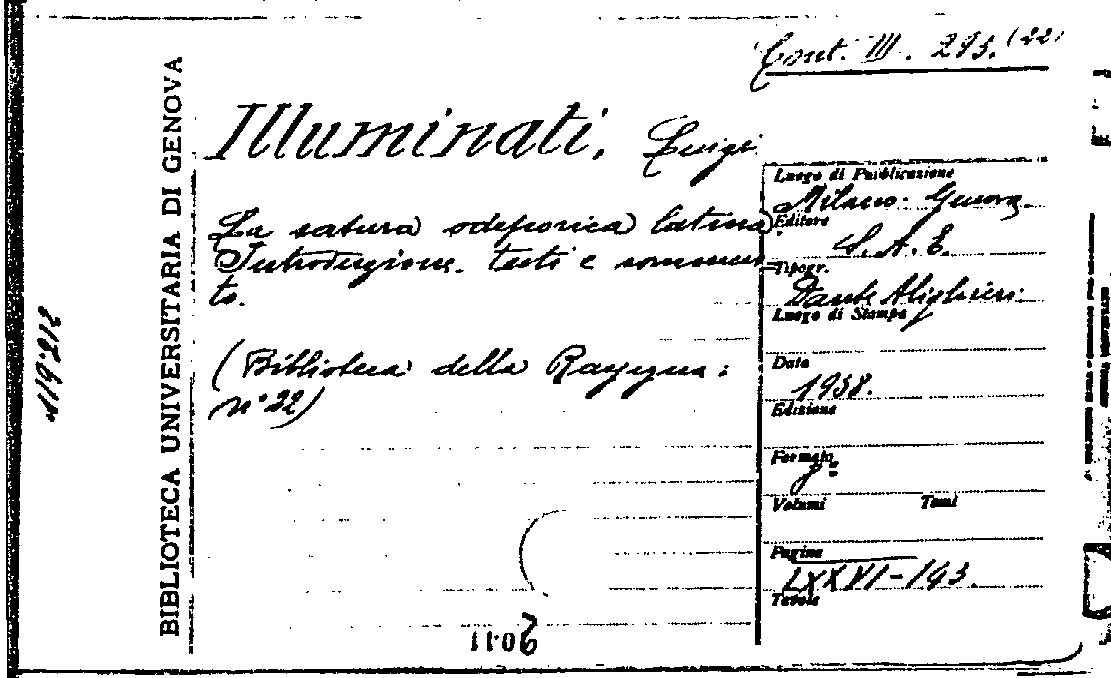 Cont. III. 293. (22)
Illuminati, Luigi
La satura odeporica latina.
Introduzione. testi e commen-
to.
(Biblioteca della Rassegna:
n° 22)
Luogo di Pubblicazione
Milano. Genova
Editore
S. A. E.
Tipogr.
Dante Alighieri.
Luogo di Stampa
Data
1938.
Edizione
Formato
Volumi Tomi
Pagine
LXXVI-193.
Tavole
BIBLIOTECA UNIVERSITARIA DI GENOVA